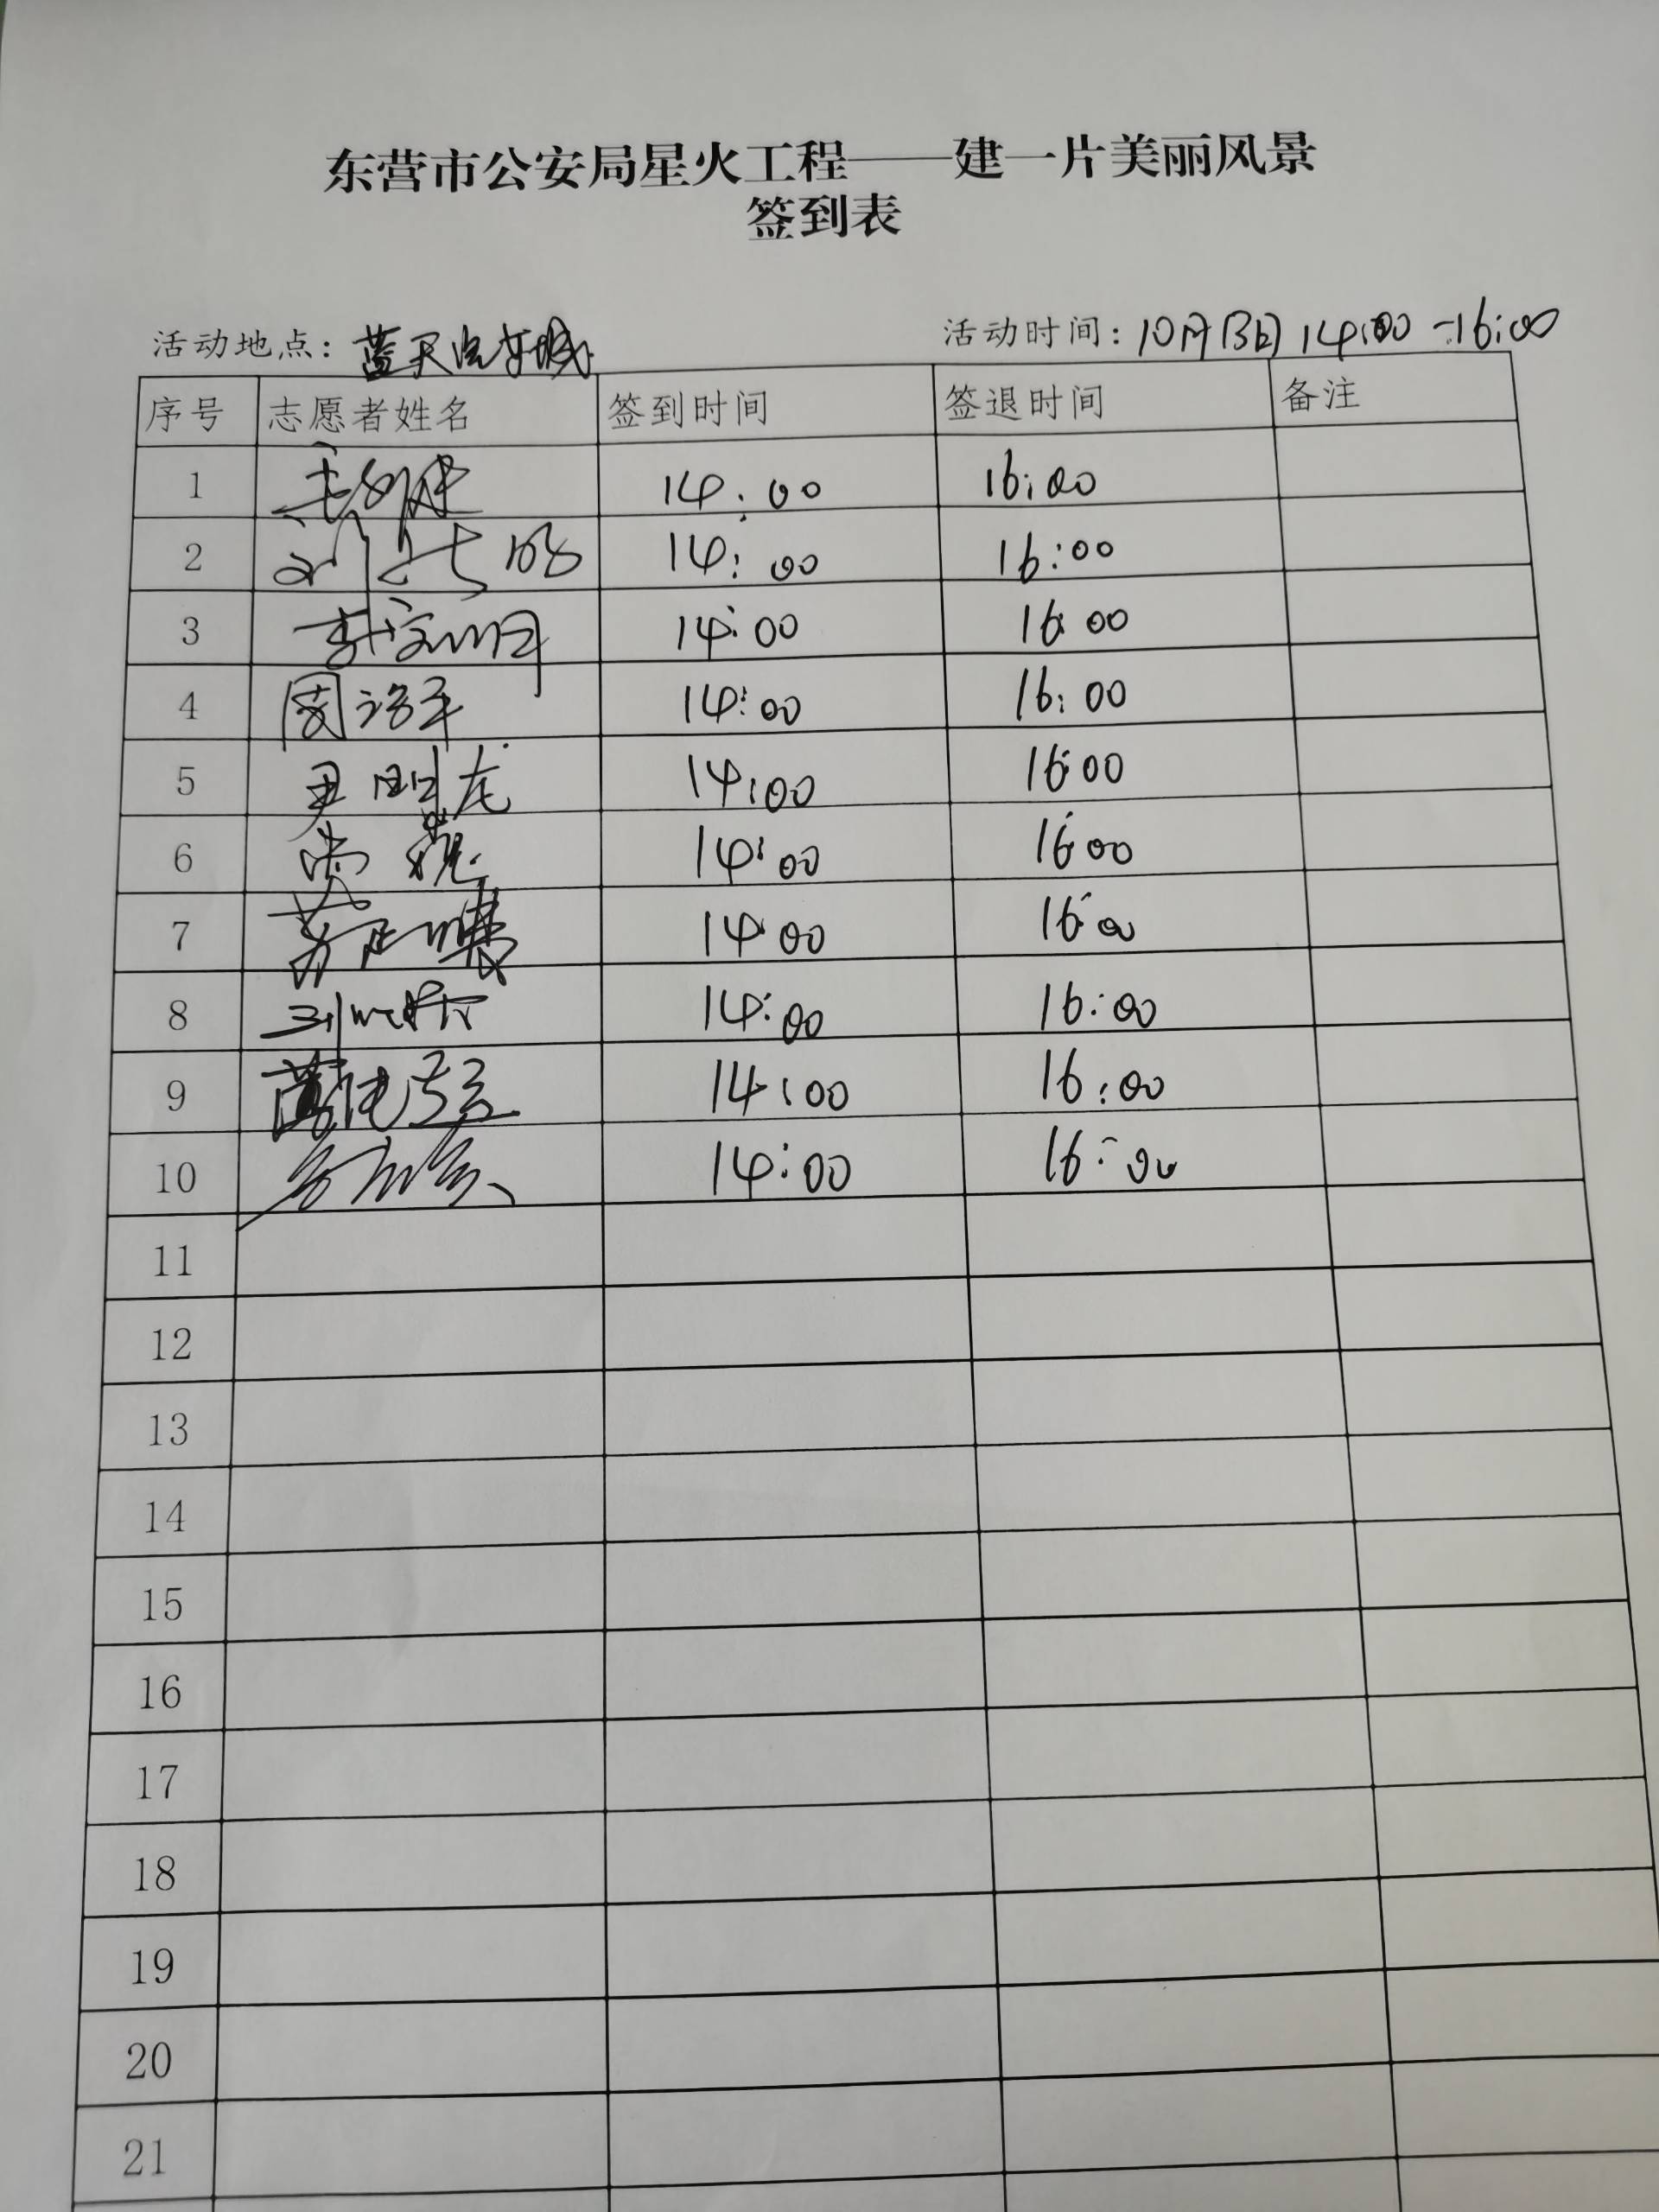 东营市公安局星火工程——建一片美丽风景
签到表
活动地点：蓝天汽车城 活动时间：10月13日 14:00-16:00
序号 志愿者姓名 签到时间 签退时间 备注
1 14:00 16:00
2 14:00 16:00
3 14:00 16:00
4 14:00 16:00
5 尹明龙 14:00 16:00
6 14:00 16:00
7 14:00 16:00
8 14:00 16:00
9 14:00 16:00
10 14:00 16:00
11
12
13
14
15
16
17
18
19
20
21